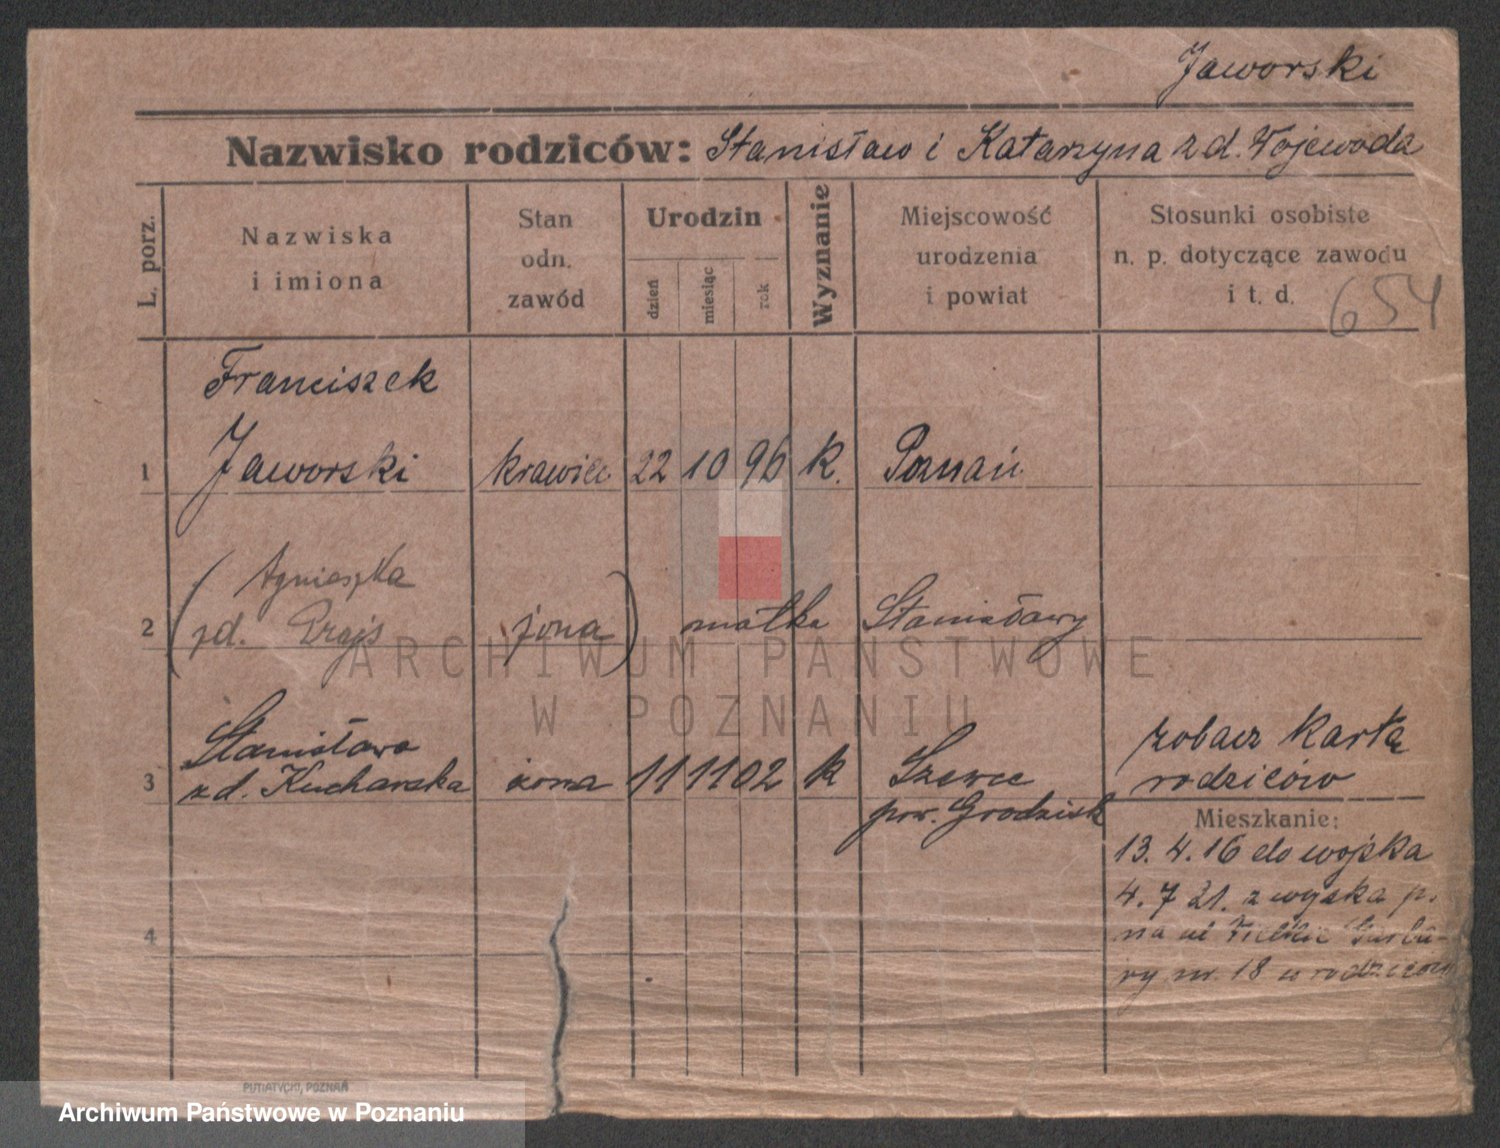 Jaworski
Nazwisko rodziców: Stanisław i Katarzyna z d. Wojewoda
L. porz.
Nazwiska
i imiona
Stan
odn.
zawód
Urodzin
dzień
miesiąc
rok
Wyznanie
Miejscowość
urodzenia
i powiat
Stosunki osobiste
n. p. dotyczące zawodu
i t. d.
654
Franciszek
1 Jaworski krawiec 22 10 96 k. Poznań
(Agnieszka
2 zd. żona) matka Stanisławy
Stanisława
3 z d. Kucharska żona 11 11 02 k Szewce
pow. Grodzisk
zobacz kartę
rodziców
Mieszkanie:
13. 4. 16 do wojska
4. 7 21. z wojska p.
na ul Wielkie Garba-
ry nr. 18 u rodziców
4
PUTIATYCKI, POZNAŃ
ARCHIWUM PAŃSTWOWE
W POZNANIU
Archiwum Państwowe w Poznaniu